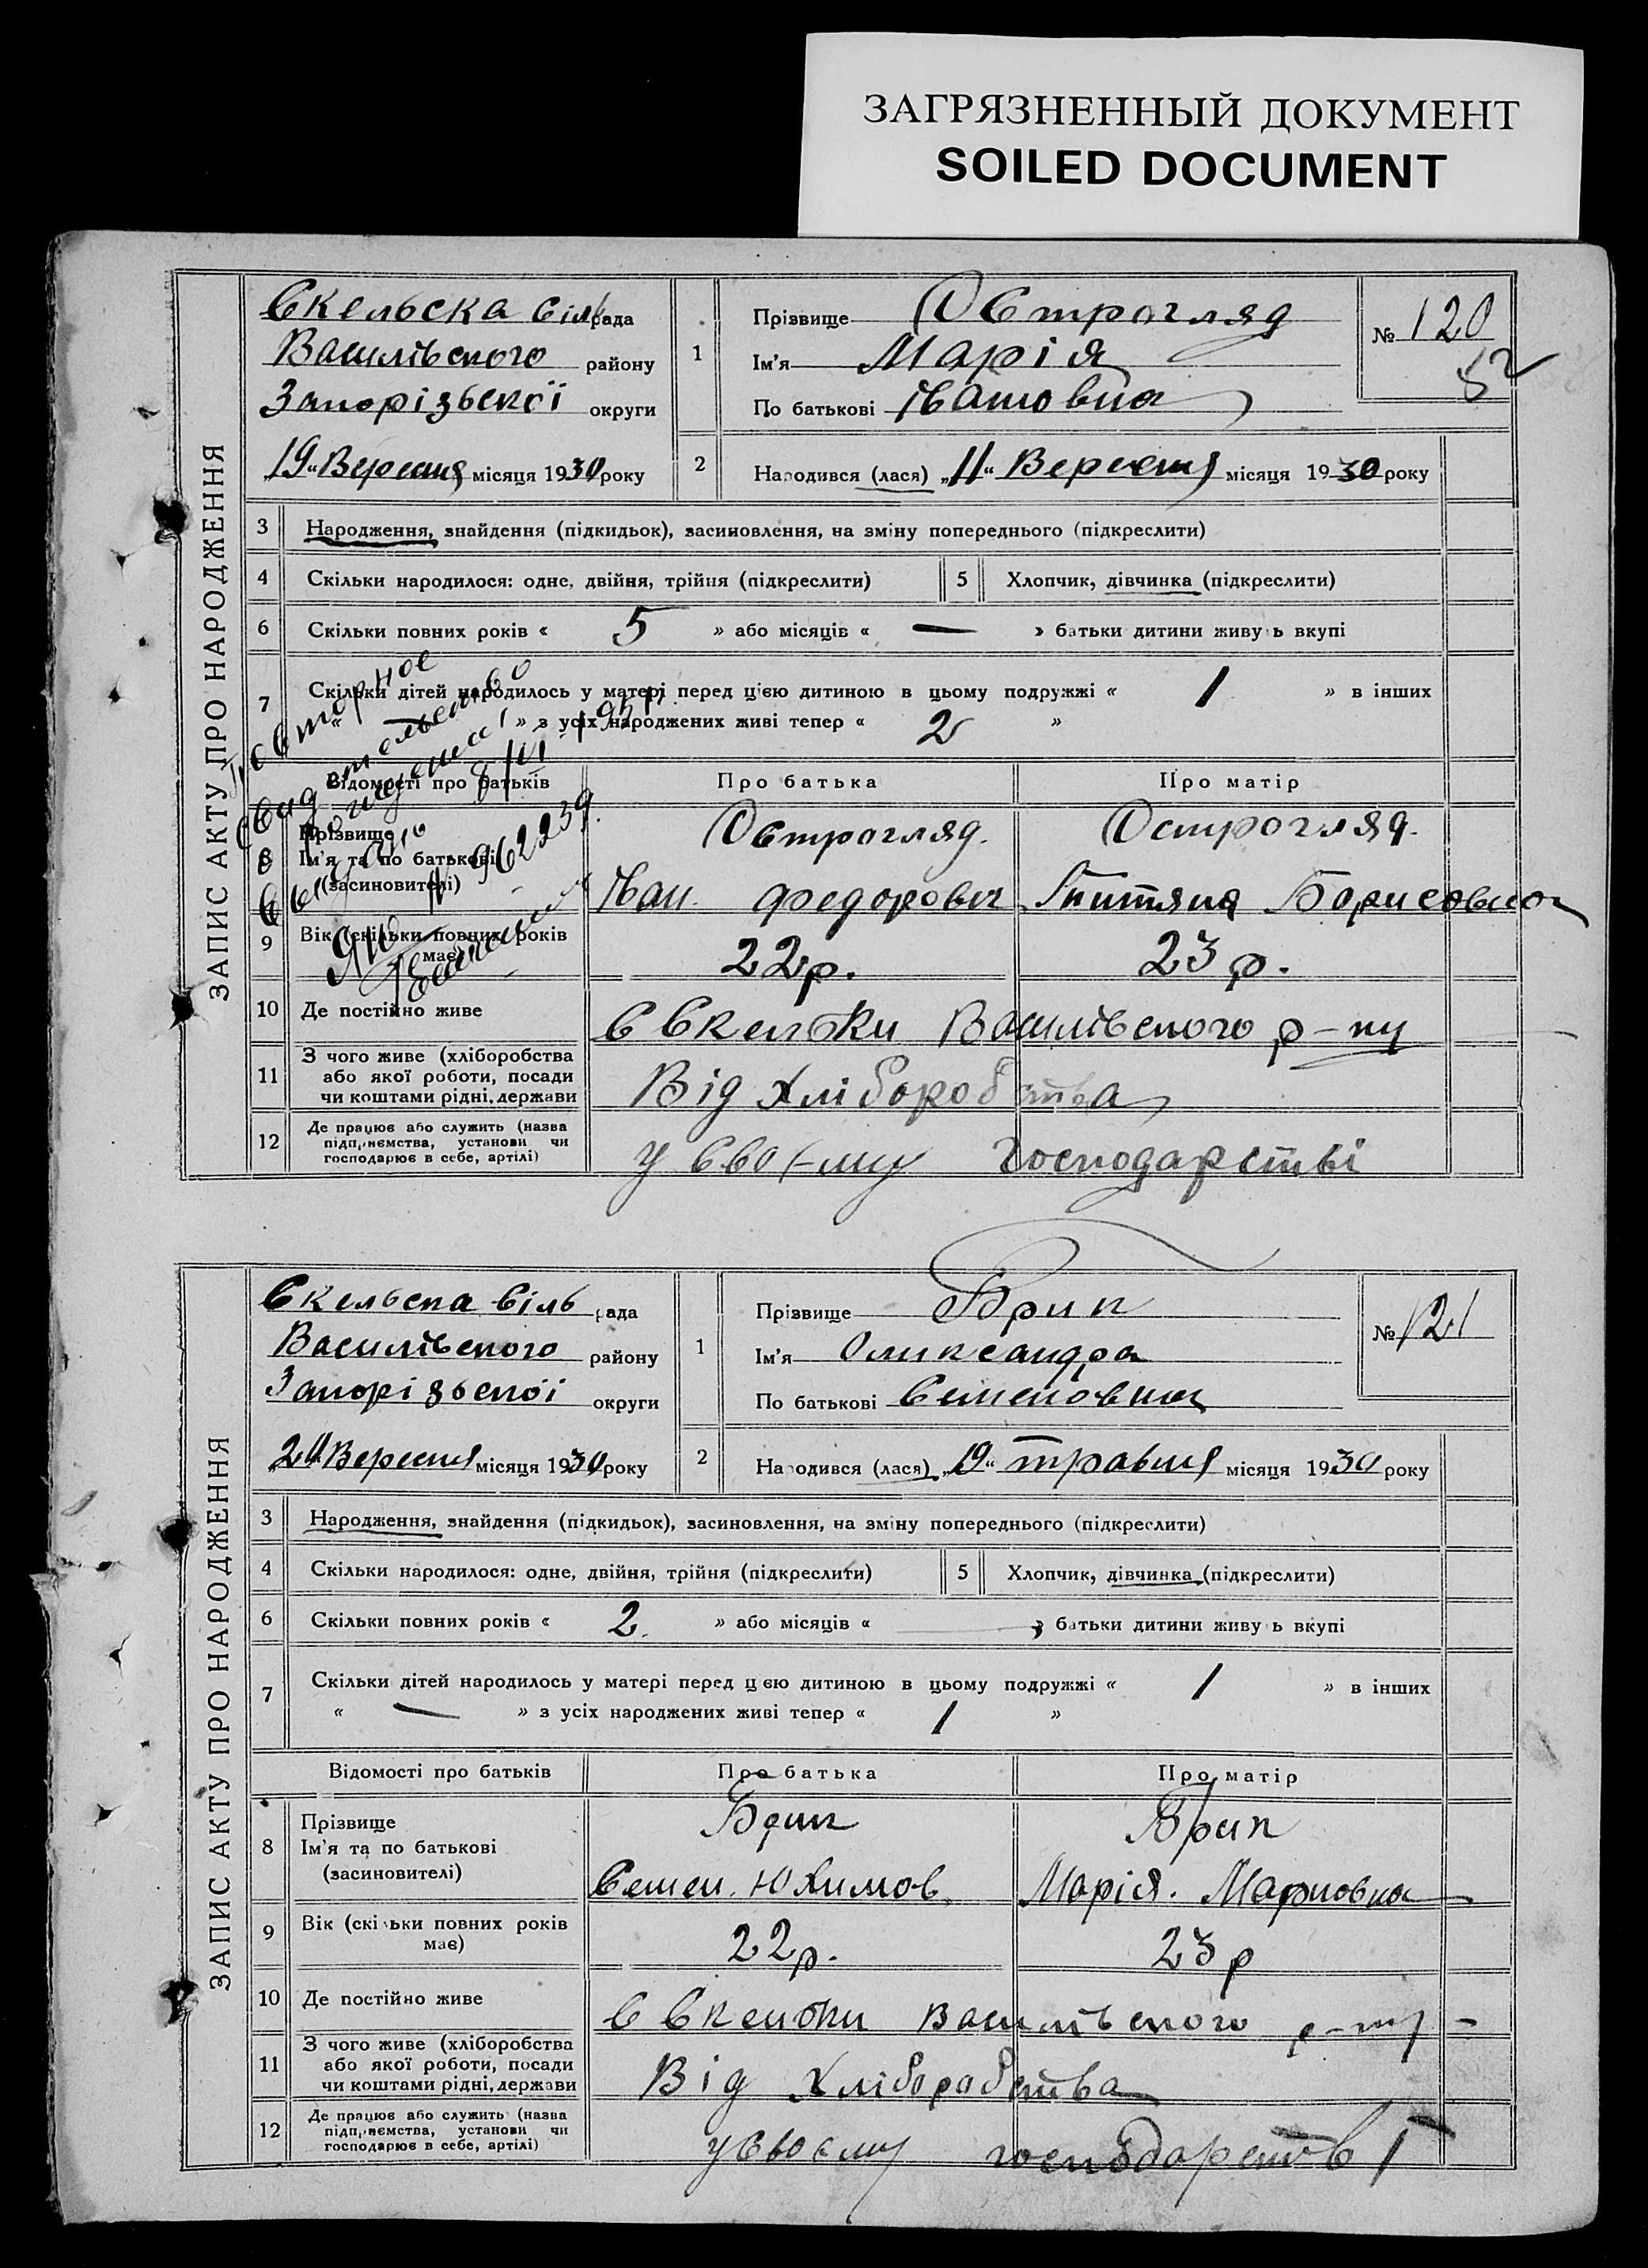 ЗАГРЯЗНЕННЫЙ ДОКУМЕНТ
SOILED DOCUMENT
ЗАПИС АКТУ ПРО НАРОДЖЕННЯ
Скельска Сільрада
Василівського району
Запорізьскої округи
„19“ Вересня місяця 1930 року
1
Прізвище Остроглял
Ім'я Марія
По батькові Івановна
№ 120
52
2
Народився (лася) „11“ Вересня місяця 1930 року
3 Народження, знайдення (підкидьок), засиновлення, на зміну попереднього (підкреслити)
4 Скільки народилося: одне, двійня, трійня (підкреслити)
5 Хлопчик, дівчинка (підкреслити)
6 Скільки повних років « 5 » або місяців « — » батьки дитини живуть вкупі
7 Скільки дітей народилось у матері перед цією дитиною в цьому подружжі « 1 » в інших
« » з усіх народжених живі тепер « 2 »
Повторное
свидетельство
о рождении
выдано 8/VI 1951
ЯЮ № 962239.
Відомості про батьків Про батька Про матір
8 Прізвище
Ім'я та по батькові
(засиновителі)
Острогляд. Острогляд.
Іван Федорович Титяна Борисовна
9 Вік (скільки повних років має) 22 р. 23 р.
10 Де постійно живе С Скельки Василівского р-ну
11 З чого живе (хліборобства
або якої роботи, посади
чи коштами рідні, держави
Від Хліборобства
12 Де працює або служить (назва
підприємства, установи чи
господарює в себе, артілі)
у своєму господарстві
ЗАПИС АКТУ ПРО НАРОДЖЕННЯ
Скельска Сіль рада
Василівского району
Запорізьскої округи
„20“ Вересня місяця 1930 року
1
Прізвище Брик
Ім'я Олександра
По батькові Семеновна
№ 121
2
Народився (лася) „19“ травня місяця 1930 року
3 Народження, знайдення (підкидьок), засиновлення, на зміну попереднього (підкреслити)
4 Скільки народилося: одне, двійня, трійня (підкреслити)
5 Хлопчик, дівчинка (підкреслити)
6 Скільки повних років « 2. » або місяців « » батьки дитини живуть вкупі
7 Скільки дітей народилось у матері перед цією дитиною в цьому подружжі « 1 » в інших
« — » з усіх народжених живі тепер « 1 »
Відомості про батьків Про батька Про матір
8 Прізвище
Ім'я та по батькові
(засиновителі)
Брик Брик
Семен. Юхимов Марія. Марковна
9 Вік (скільки повних років має) 22 р. 23 р
10 Де постійно живе С Скельки Василівского р-ну
11 З чого живе (хліборобства
або якої роботи, посади
чи коштами рідні, держави
Від Хліборобства
12 Де працює або служить (назва
підприємства, установи чи
господарює в себе, артілі)
у своєму господарстві